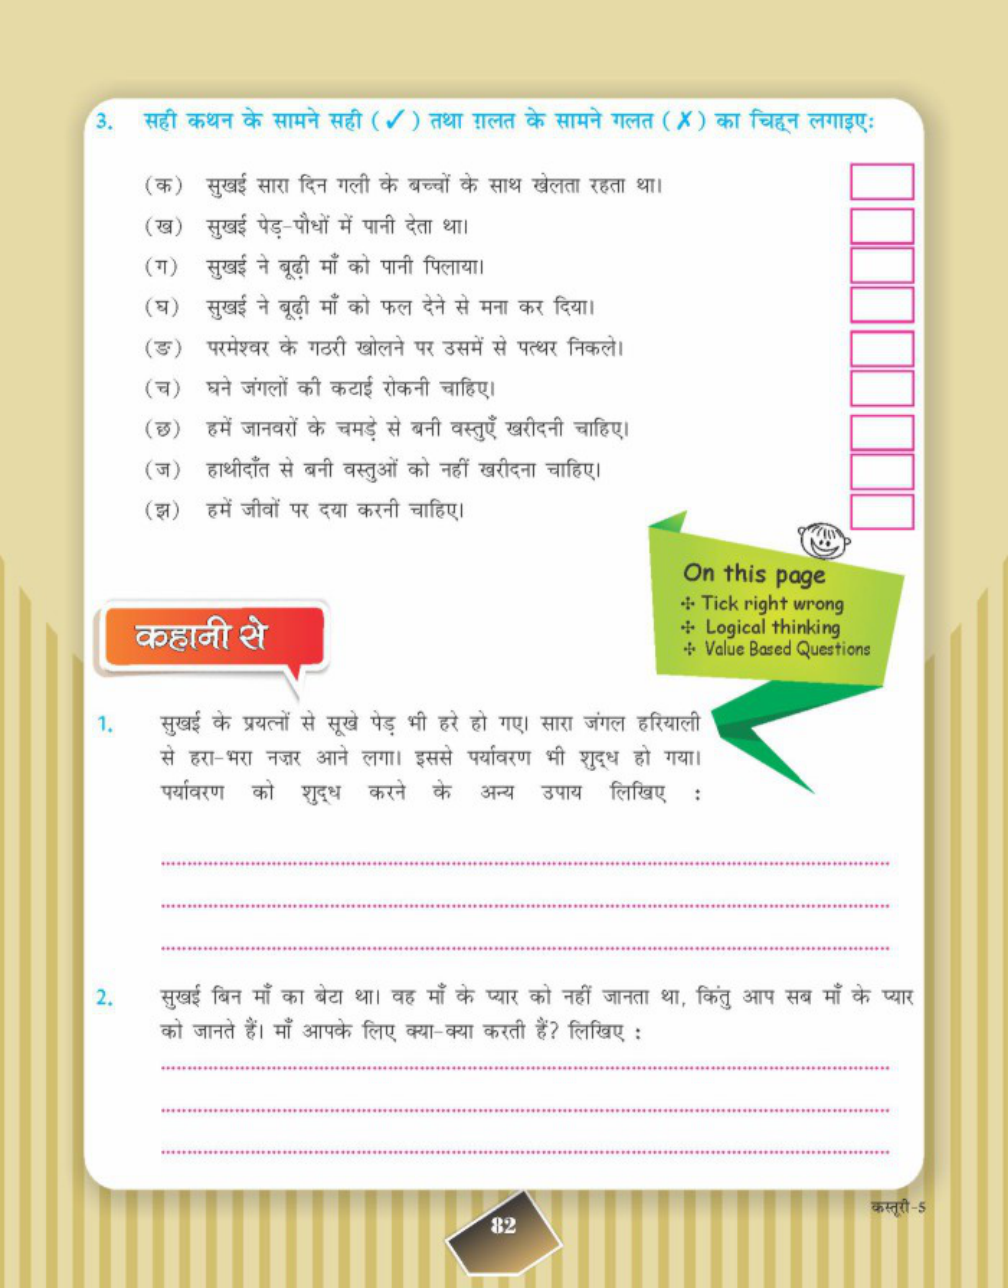 3. सही कथन के सामने सही (✓) तथा ग़लत के सामने गलत (✗) का चिह्न लगाइए:
(क) सुखई सारा दिन गली के बच्चों के साथ खेलता रहता था।
(ख) सुखई पेड़-पौधों में पानी देता था।
(ग) सुखई ने बूढ़ी माँ को पानी पिलाया।
(घ) सुखई ने बूढ़ी माँ को फल देने से मना कर दिया।
(ङ) परमेश्वर के गठरी खोलने पर उसमें से पत्थर निकले।
(च) घने जंगलों की कटाई रोकनी चाहिए।
(छ) हमें जानवरों के चमड़े से बनी वस्तुएँ खरीदनी चाहिए।
(ज) हाथीदाँत से बनी वस्तुओं को नहीं खरीदना चाहिए।
(झ) हमें जीवों पर दया करनी चाहिए।
On this page
✣ Tick right wrong
✣ Logical thinking
✣ Value Based Questions
कहानी से
1. सुखई के प्रयत्नों से सूखे पेड़ भी हरे हो गए। सारा जंगल हरियाली
से हरा-भरा नज़र आने लगा। इससे पर्यावरण भी शुद्ध हो गया।
पर्यावरण को शुद्ध करने के अन्य उपाय लिखिए :
2. सुखई बिन माँ का बेटा था। वह माँ के प्यार को नहीं जानता था, किंतु आप सब माँ के प्यार
को जानते हैं। माँ आपके लिए क्या-क्या करती हैं? लिखिए :
82
कस्तूरी-5